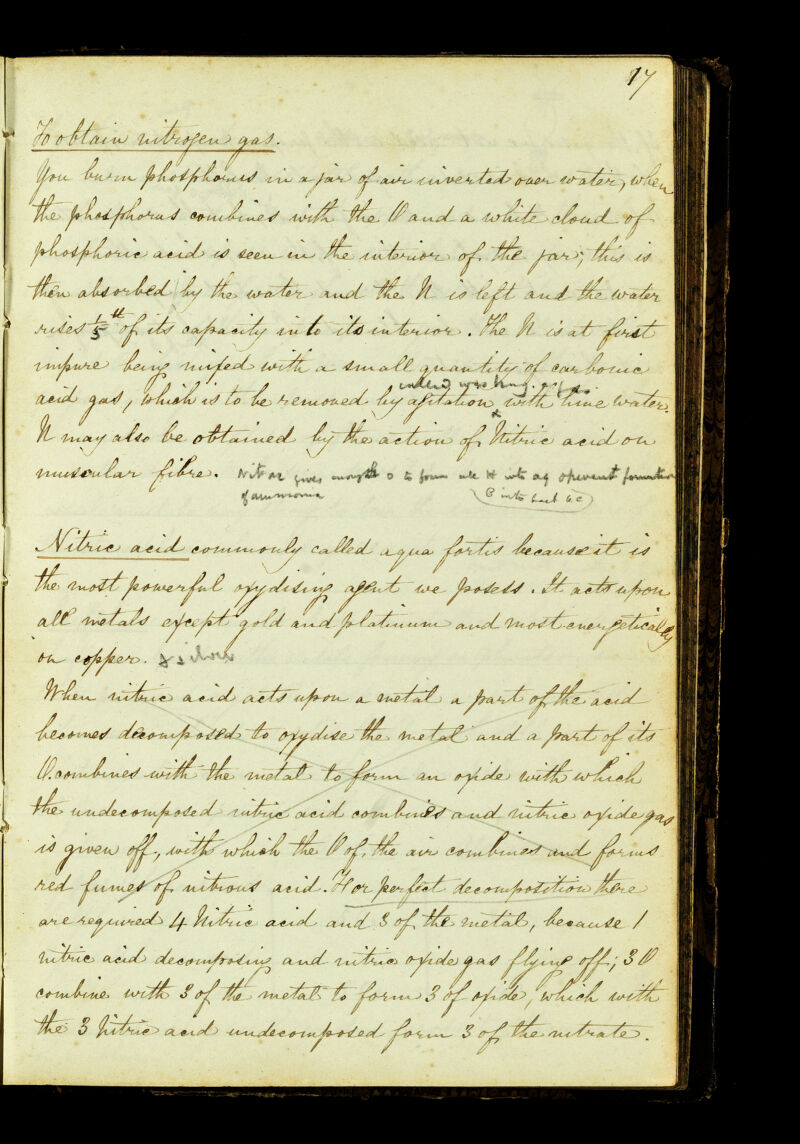 17
To obtain nitrogen gas.
You burn phosphorus in a jar of air inverted over water, when
the phosphorus combines with the O and a white cloud of
phosphoric acid is seen in the interior of the jar; this is
then absorbed by the water and the N is left and the water
rises 1/5th of its capacity into its interior. The N is at first
impure being mixed with a small quantity of carbonic
acid gas, which is to be removed by agitation with lime water.
N may also be obtained by the action of Nitric acid on
muscular fibre. Nit ac gives enough O to form H into aq & prevent formation
of ammonia C into carb ac
Nitric acid commonly called aqua fortis because it is
the most powerful oxydising agent we posess. It acts upon
all metals except gold and platinum and most energetically
on copper. & silver
When nitric acid acts upon a metal a part of the acid
becomes decomposed to oxydise the metal and a part of its
O. combines with the metal to form an oxide with which
the undecomposed nitric acid combines and nitric oxide gas
is given off, with which the O of the air combines and forms
red fumes of nitrous acid. For perfect decomposition there
are required 4 Nitric acid and 3 of the metal, because 1
nitric acid decomposing and nitric oxide gas flying off; 3 O
combine with 3 of the metal to form 3 of oxide, which with
the 3 Nitric acid undecomposed form 3 of the nitrate.